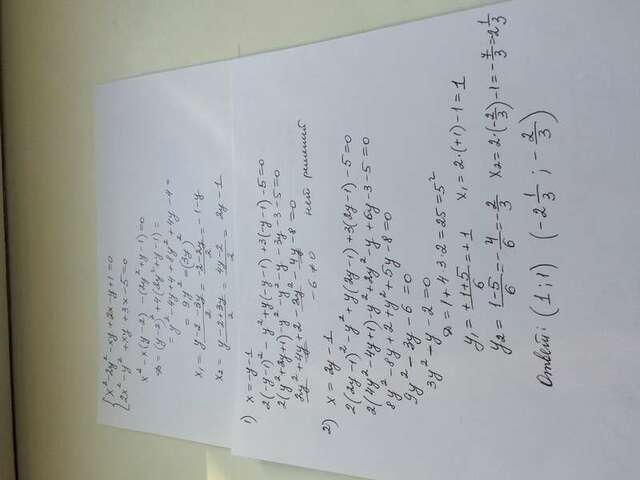 x² - 2y² - xy + 2x - y + 1 = 0
2x² - y² + xy + 3x - 5 = 0
x² - x(y-2) - (2y² + y - 1) = 0
D = (y-2)² + 4(2y² + y - 1) =
= y² - 4y + 4 + 8y² + 4y - 4 =
= 9y² = (3y)²
x₁ = (y-2-3y)/2 = (-2-2y)/2 = -1-y
x₂ = (y-2+3y)/2 = (4y-2)/2 = 2y-1
1) x = -y-1
2(-y-1)² - y² + y(-y-1) + 3(-y-1) - 5 = 0
2(y²+2y+1) - y² - y² - y - 3y - 3 - 5 = 0
2y² + 4y + 2 - 2y² - 4y - 8 = 0
-6 ≠ 0 нет решений
2) x = 2y-1
2(2y-1)² - y² + y(2y-1) + 3(2y-1) - 5 = 0
2(4y²-4y+1) - y² + 2y² - y + 6y - 3 - 5 = 0
8y² - 8y + 2 + y² + 5y - 8 = 0
9y² - 3y - 6 = 0
3y² - y - 2 = 0
D = 1 + 4·3·2 = 25 = 5²
y₁ = (+1+5)/6 = +1 x₁ = 2·(+1) - 1 = 1
y₂ = (1-5)/6 = -4/6 = -2/3 x₂ = 2·(-2/3) - 1 = -7/3 = -2 1/3
Ответ: (1; 1) (-2 1/3; -2/3)